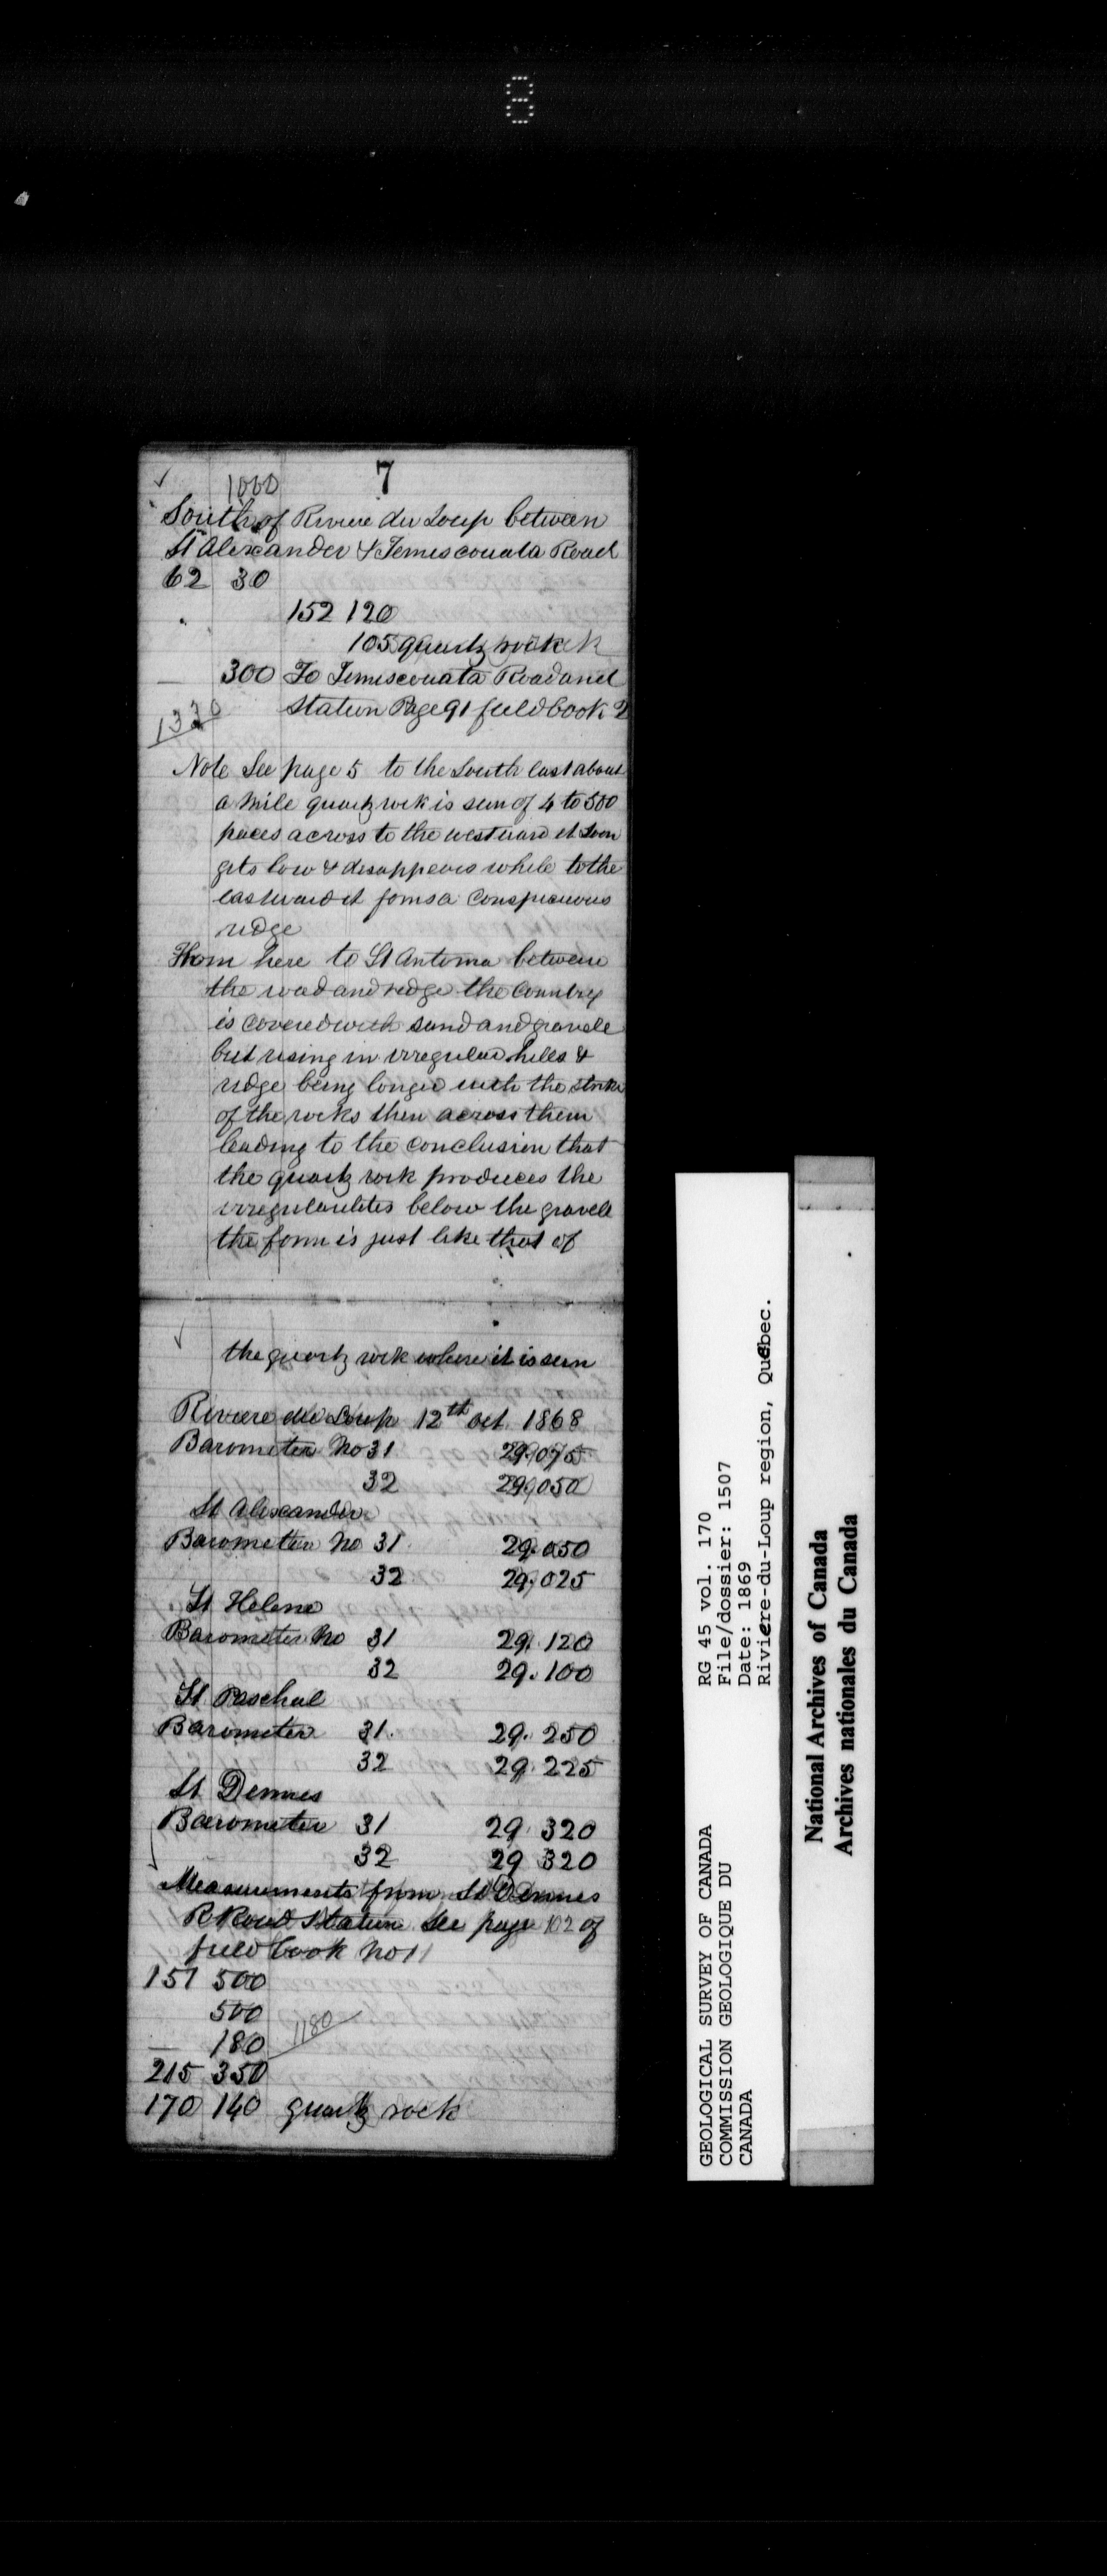 8
7
1000
South of Riviere du Loup between
St Alexander & Temiscouata Road
62 30
152 120
105 quartz rock
300 To Temiscouata Road and
Station Page 91 field book 2
1330
Note See page 5 to the South East about
a mile quartz rock is seen of 4 to 500
paces across to the westward it soon
gets low & disappears while to the
eastward it foms a conspicuous
ridge
From here to St Antoma between
the road and ridge the country
is covered with sand and gravele
but rising in irregular hills &
ridge being longer with the strike
of the rocks then across them
leading to the conclusion that
the quartz rock produces the
irregularites below the gravele
the form is just like that of
the quartz rock where it is seen
Riviere du Loup 12th oct 1868
Barometer No 31 29.075
32 29.050
St Alexander
Barometer No 31 29.050
32 29.025
St Helene
Barometer No 31 29.120
32 29.100
St Paschal
Barometer 31. 29.250
32 29 225
St Dennes
Barometer 31 29 320
32 29 320
Measurements from St Dennes
R Road Station See page 102 of
field book No 1
157 500
500
180 1180
215 350
170 140 quartz rock
GEOLOGICAL SURVEY OF CANADA
COMMISSION GEOLOGIQUE DU
CANADA
RG 45 vol. 170
File/dossier: 1507
Date: 1869
Riviere-du-Loup region, Quebec.
National Archives of Canada
Archives nationales du Canada